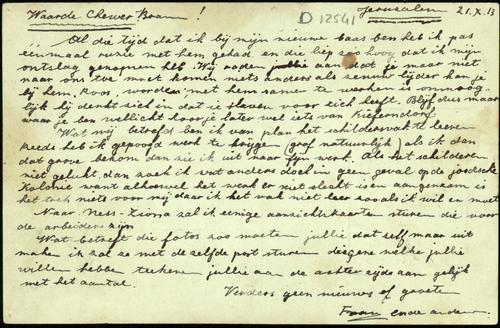 Waarde Chewer Bram!
D 12541
Jeruzalem 21.X.13
Al die tijd dat ik bij mijn nieuwe baas ben heb ik pas
éénmaal ruzie met hem gehad en die liep zoo hoog dat ik mijn
ontslag genomen heb. Wij raden jullie aan dat je maar niet
naar ons toe moet komen niets anders als zenuwlijder kan je
bij hem, Roos, worden met hem samen te werken is onmoog-
lijk hij denkt zich in dat ie slaven voor zich heeft. Blijf dus maar
waar je ben wellicht hoor je later wel iets van Kieferndorf.
Wat mij betrefd ben ik van plan het schildersvak te leeren
Reeds heb ik gepoogd werk te krijgen (grof natuurlijk) als ik dan
dat grove bekom dan zie ik uit naar fijn werk. Als het schilderen
niet gelukt, dan zoek ik wat anders doch in geen geval op de joodsche
Kolonie want alhoewel het werk er niet slecht is en aangenaam is
het toch niets voor mij daar ik het vak niet leer zooals ik wil en moet
Naar Ness-Ziona zal ik eenige aanzichtskaarten sturen die voor
de arbeiders zijn
Wat betreft die fotos zoo moeten jullie dat zelf maar uit
maken ik zal ze met de zelfde post sturen diegene welke jullie
willen hebben teeken jullie aan de achter zijde aan gelijk
met het aantal.
Verders geen nieuws of groete
Frans ende andere